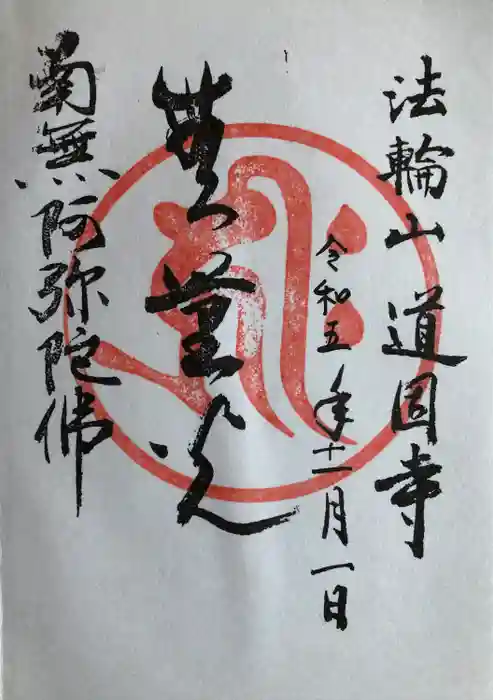 法輪山 道圓寺
令和五年十一月一日
無量光
南無阿弥陀佛